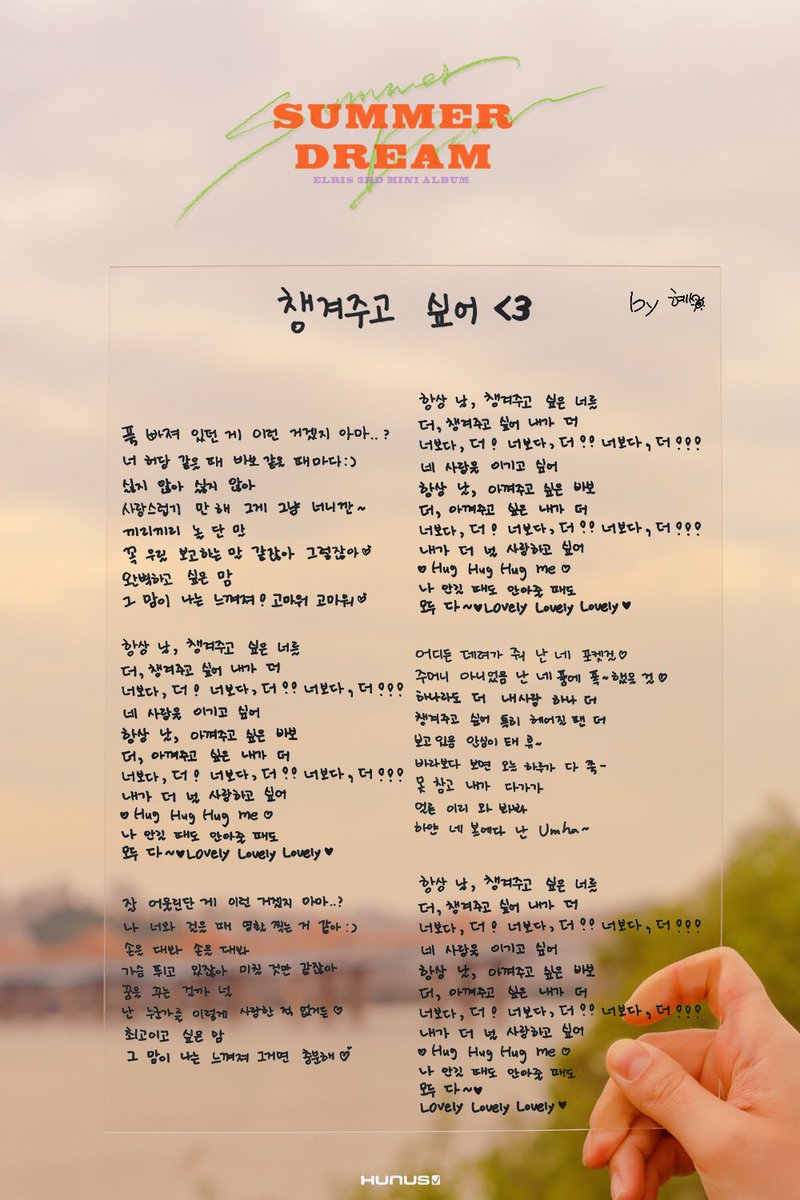 Summer Dream
SUMMER
DREAM
ELRIS 3RD MINI ALBUM
챙겨주고 싶어 <3
by 혜성
푹 빠져 있던 게 이런 거겠지 아마..?
너 허당 같을 때 바보 같을 때마다:)
싫지 않아 싫지 않아
사랑스럽기 만 해 그게 그냥 너니깐~
끼리끼리 논 단 만
꼭 우릴 보고하는 말 같잖아 그렇잖아♡
완벽하고 싶은 맘
그 맘이 나는 느껴져! 고마워 고마워♡
항상 난, 챙겨주고 싶은 너를
더, 챙겨주고 싶어 내가 더
너보다, 더! 너보다, 더!! 너보다, 더!!!
네 사랑을 이기고 싶어
항상 난, 아껴주고 싶은 바보
더, 아껴주고 싶은 내가 더
너보다, 더! 너보다, 더!! 너보다, 더!!!
내가 더 널 사랑하고 싶어
♡Hug Hug Hug me♡
나 안길 때도 안아줄 때도
모두 다~♥Lovely Lovely Lovely♥
잘 어울린단 게 이런 거겠지 아마..?
나 너와 걸을 때 영화 찍는 거 같아:)
손을 대봐 손을 대봐
가슴 뛰고 있잖아 미칠 것만 같잖아
꿈을 꾸는 걸까 넌
난 누군가를 이렇게 사랑한 적 없거든♡
최고이고 싶은 맘
그 맘이 나는 느껴져 그거면 충분해♡
항상 난, 챙겨주고 싶은 너를
더, 챙겨주고 싶어 내가 더
너보다, 더! 너보다, 더!! 너보다, 더!!!
네 사랑을 이기고 싶어
항상 난, 아껴주고 싶은 바보
더, 아껴주고 싶은 내가 더
너보다, 더! 너보다, 더!! 너보다, 더!!!
내가 더 널 사랑하고 싶어
♡Hug Hug Hug me♡
나 안길 때도 안아줄 때도
모두 다~♥Lovely Lovely Lovely♥
어디든 데려가 줘 난 네 포켓걸♡
주머니 아니었음 난 네 품에 폭~했을 걸♡
하나라도 더 내사랑 하나 더
챙겨주고 싶어 특히 헤어질 땐 더
보고 있음 안심이 돼 휴~
바라보다 보면 오늘 하루가 다 훅-
못 참고 내가 다가가
얼른 이리 와 봐봐
하얀 네 볼에다 난 Umha~
항상 난, 챙겨주고 싶은 너를
더, 챙겨주고 싶어 내가 더
너보다, 더! 너보다, 더!! 너보다, 더!!!
네 사랑을 이기고 싶어
항상 난, 아껴주고 싶은 바보
더, 아껴주고 싶은 내가 더
너보다, 더! 너보다, 더!! 너보다, 더!!!
내가 더 널 사랑하고 싶어
♡Hug Hug Hug me♡
나 안길 때도 안아줄 때도
모두 다~♥
Lovely Lovely Lovely♥
HUNUS